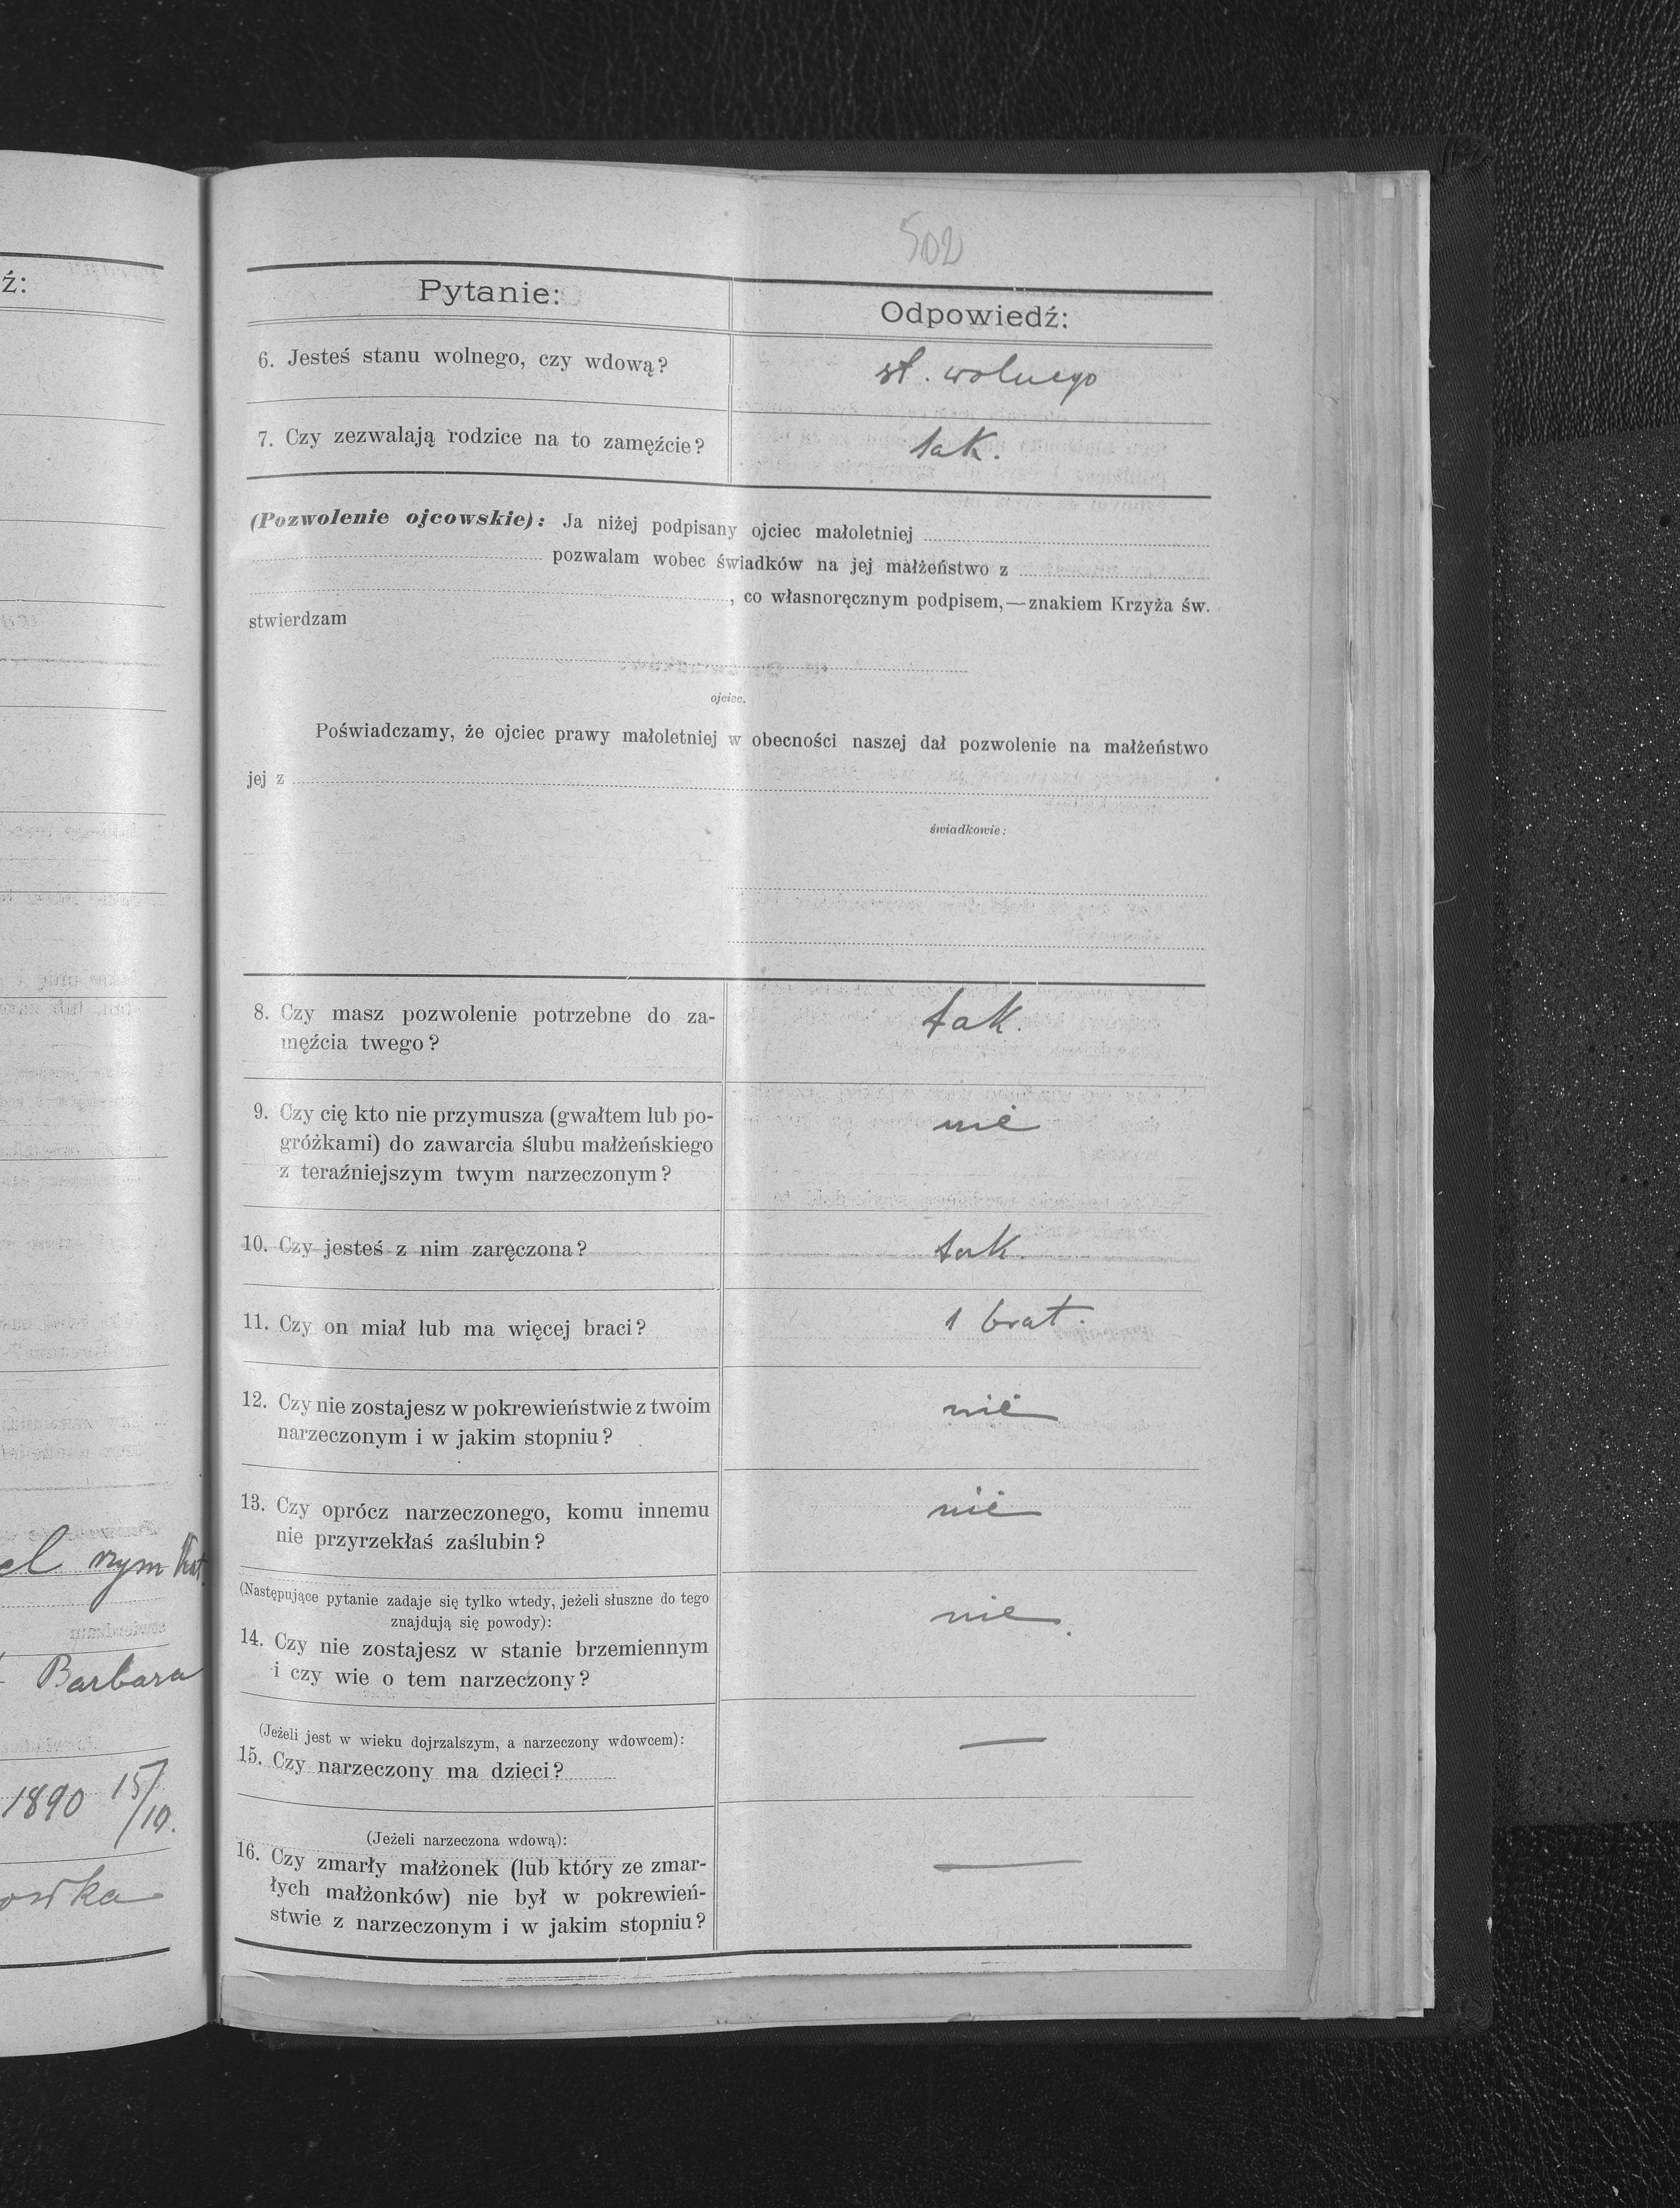 ź:
el rzym kat.
Barbara
1890 15/10.
owka
502
Pytanie:
Odpowiedź:
6. Jesteś stanu wolnego, czy wdową?
st. wolnego
7. Czy zezwalają rodzice na to zamęźcie?
tak.
(Pozwolenie ojcowskie): Ja niżej podpisany ojciec małoletniej
pozwalam wobec świadków na jej małżeństwo z
, co własnoręcznym podpisem,—znakiem Krzyża św.
stwierdzam
ojciec.
Poświadczamy, że ojciec prawy małoletniej w obecności naszej dał pozwolenie na małżeństwo
jej z
świadkowie:
8. Czy masz pozwolenie potrzebne do za-
męźcia twego?
tak.
9. Czy cię kto nie przymusza (gwałtem lub po-
gróżkami) do zawarcia ślubu małżeńskiego
z teraźniejszym twym narzeczonym?
nie
10. Czy jesteś z nim zaręczona?
tak.
11. Czy on miał lub ma więcej braci?
1 brat.
12. Czy nie zostajesz w pokrewieństwie z twoim
narzeczonym i w jakim stopniu?
nie
13. Czy oprócz narzeczonego, komu innemu
nie przyrzekłaś zaślubin?
nie
(Następujące pytanie zadaje się tylko wtedy, jeżeli słuszne do tego
znajdują się powody):
14. Czy nie zostajesz w stanie brzemiennym
i czy wie o tem narzeczony?
nie.
(Jeżeli jest w wieku dojrzalszym, a narzeczony wdowcem):
15. Czy narzeczony ma dzieci?
—
(Jeżeli narzeczona wdową):
16. Czy zmarły małżonek (lub który ze zmar-
łych małżonków) nie był w pokrewień-
stwie z narzeczonym i w jakim stopniu?
—